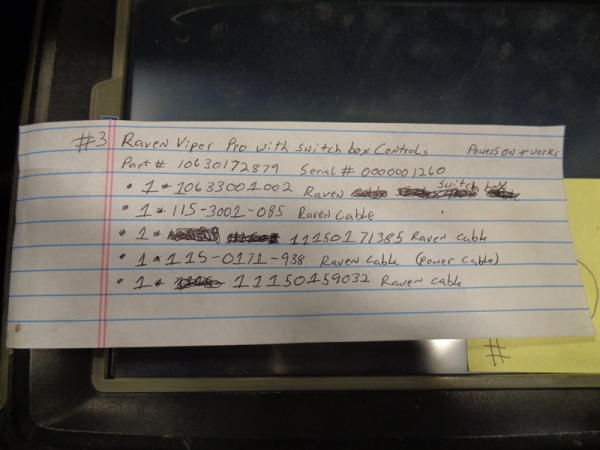 #3 Raven Viper Pro with switch box controls Powers on + works
Part # 10630172879 Serial # 0000001260
• 1 * 10633001002 Raven switch box
• 1 * 115-3001-085 Raven Cable
• 1 * 11150171385 Raven cable
• 1 * 115-0171-938 Raven cable (power cable)
• 1 * 11150159032 Raven cable
#